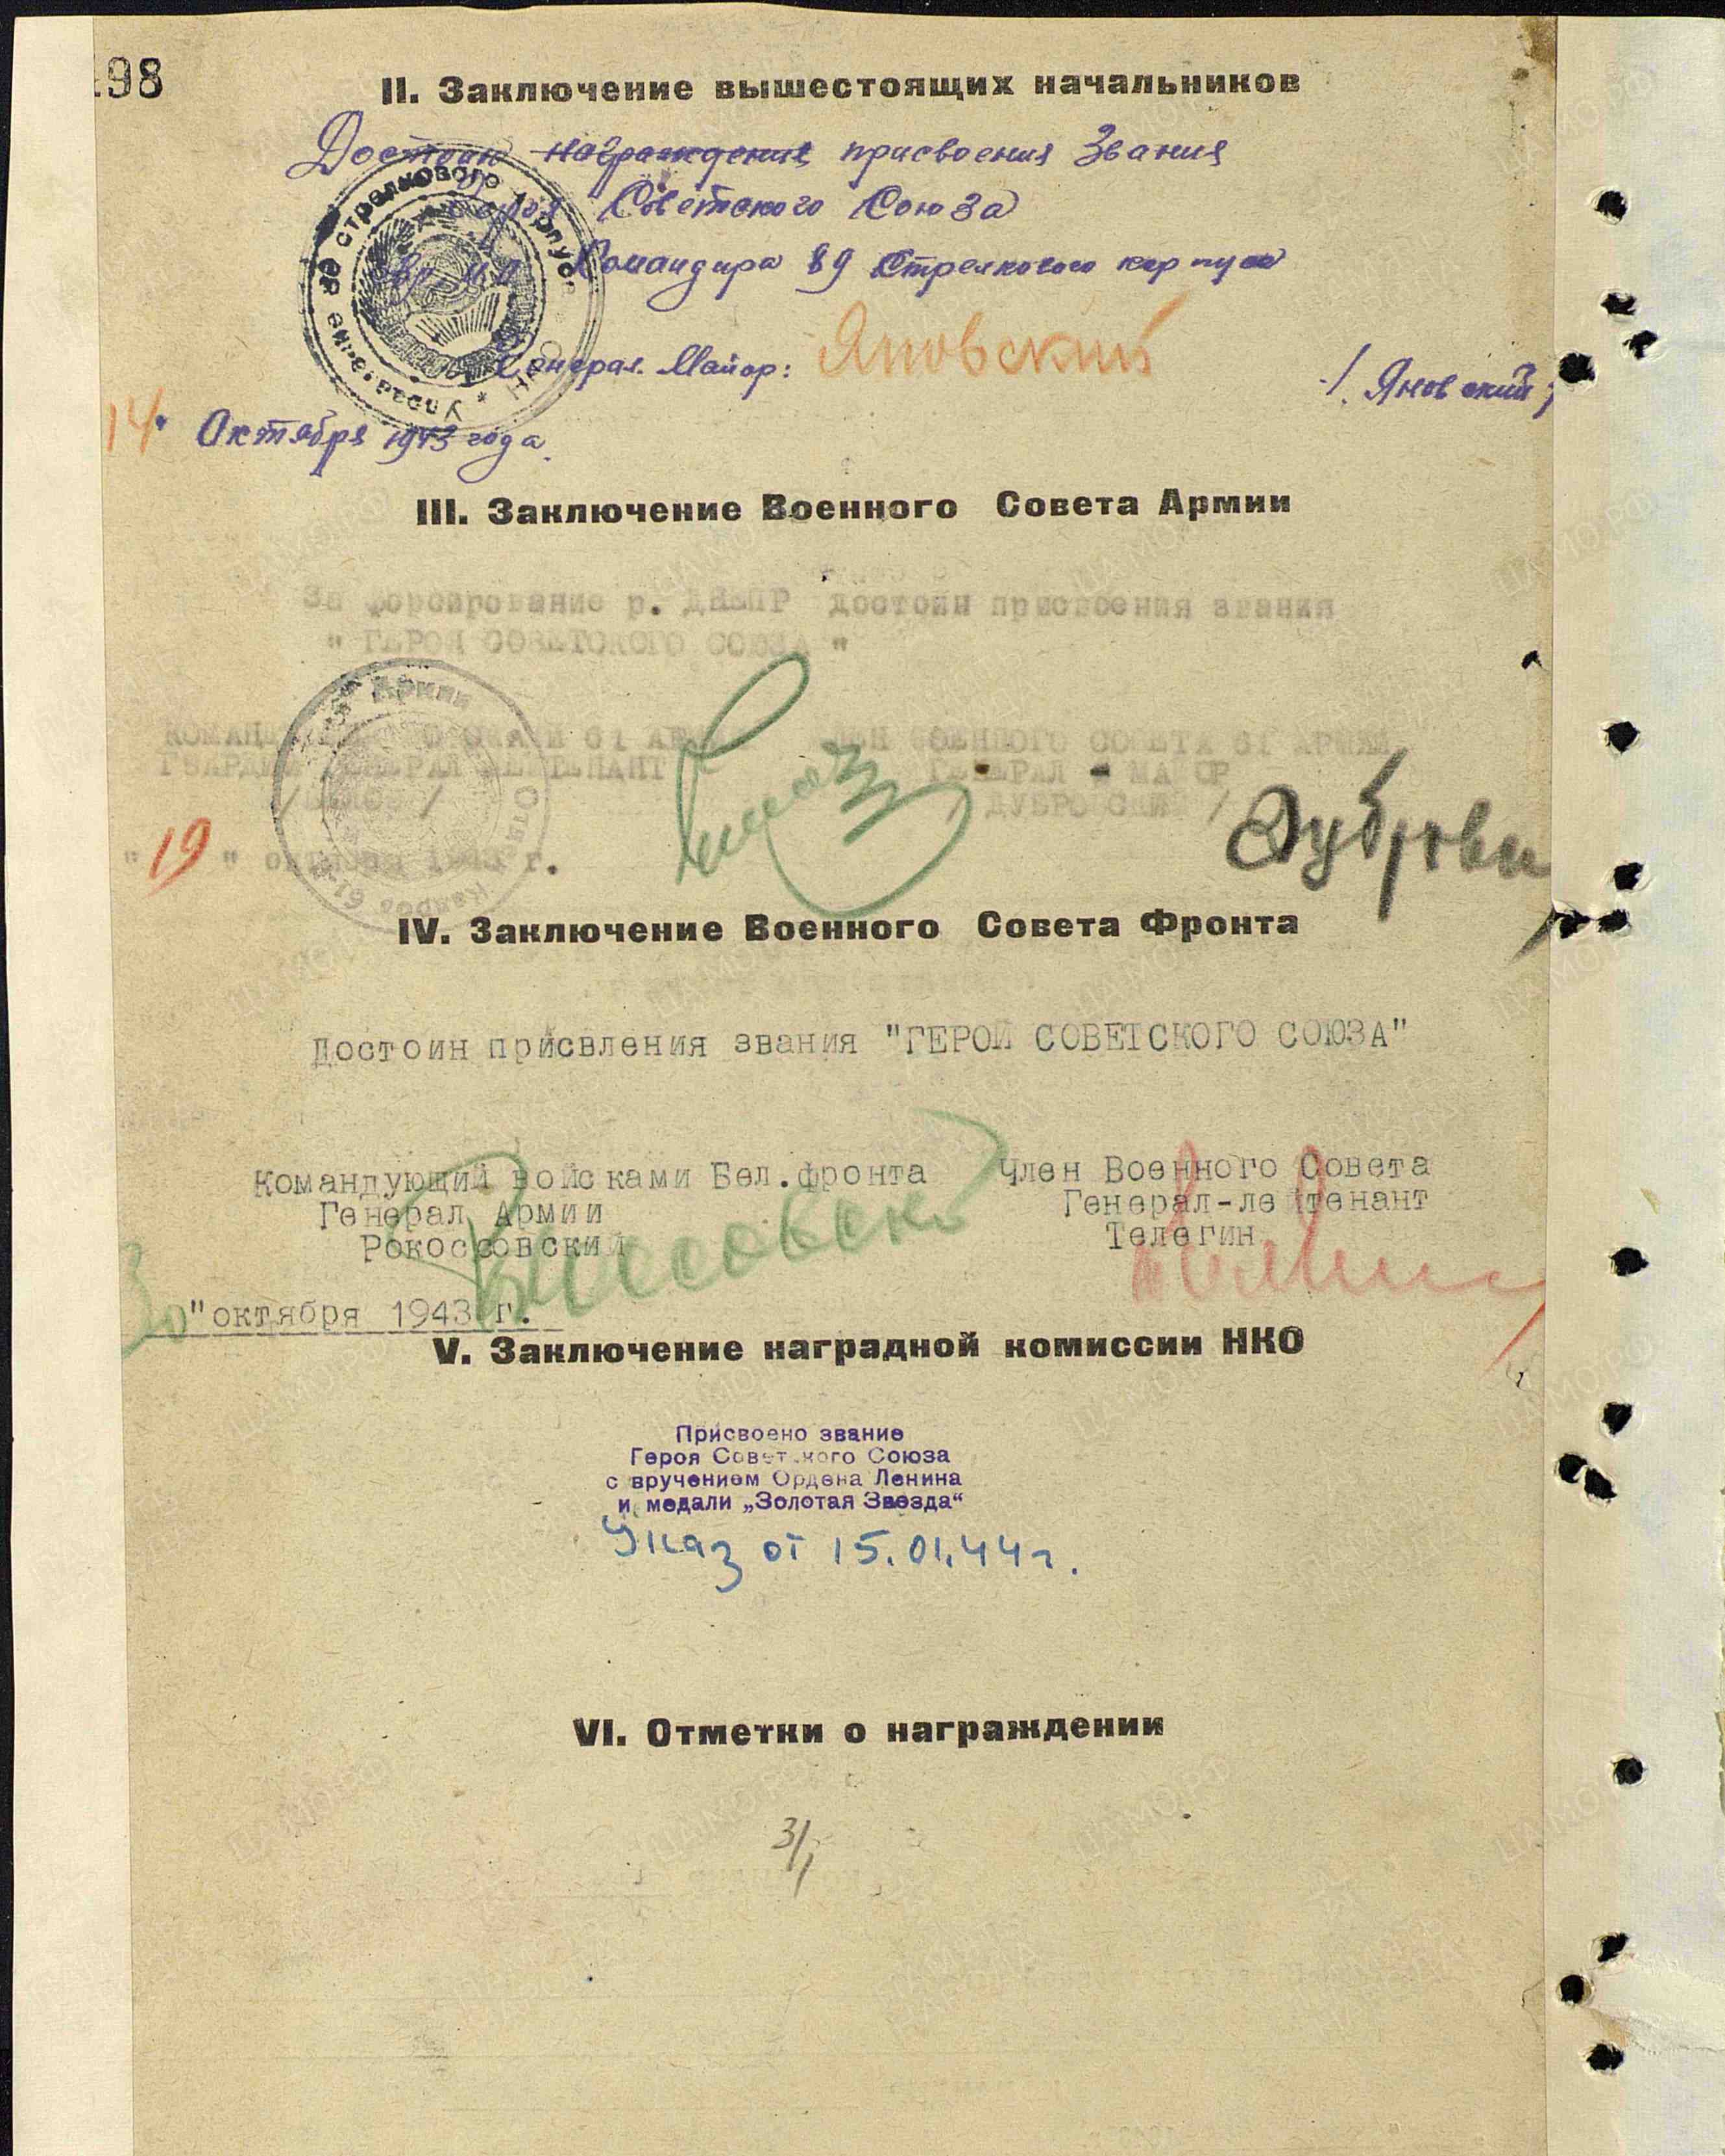 198
II. Заключение вышестоящих начальников
Достоин награждения присвоения Звания
Героя Советского Союза
Вр. И.Д. Командира 89 Стрелкового корпуса
Генерал Майор: Яновский /Яновский/
14 Октября 1943 года.
III. Заключение Военного Совета Армии
За форсирование р. ДНЕПР достоин присвоения звания
" ГЕРОЯ СОВЕТСКОГО СОЮЗА "
61 ЧЛЕН ВОЕННОГО СОВЕТА 61 АРМИИ
ГВАРДИИ ГЕНЕРАЛ ЛЕЙТЕНАНТ ГЕНЕРАЛ - МАЙОР
/ БЕЛОВ / / ДУБРОВСКИЙ /
" 19 " октября 1943 г.
IV. Заключение Военного Совета Фронта
Достоин присвления звания "ГЕРОЙ СОВЕТСКОГО СОЮЗА"
Командующий войсками Бел.фронта Член Военного Совета
Генерал Армии Генерал-ле тенант
Рокоссовский Телегин
30 "октября 1943 г.
V. Заключение наградной комиссии НКО
Присвоено звание
Героя Советского Союза
с вручением Ордена Ленина
и медали „Золотая Звезда“
Указ от 15.01.44г.
VI. Отметки о награждении
3/1